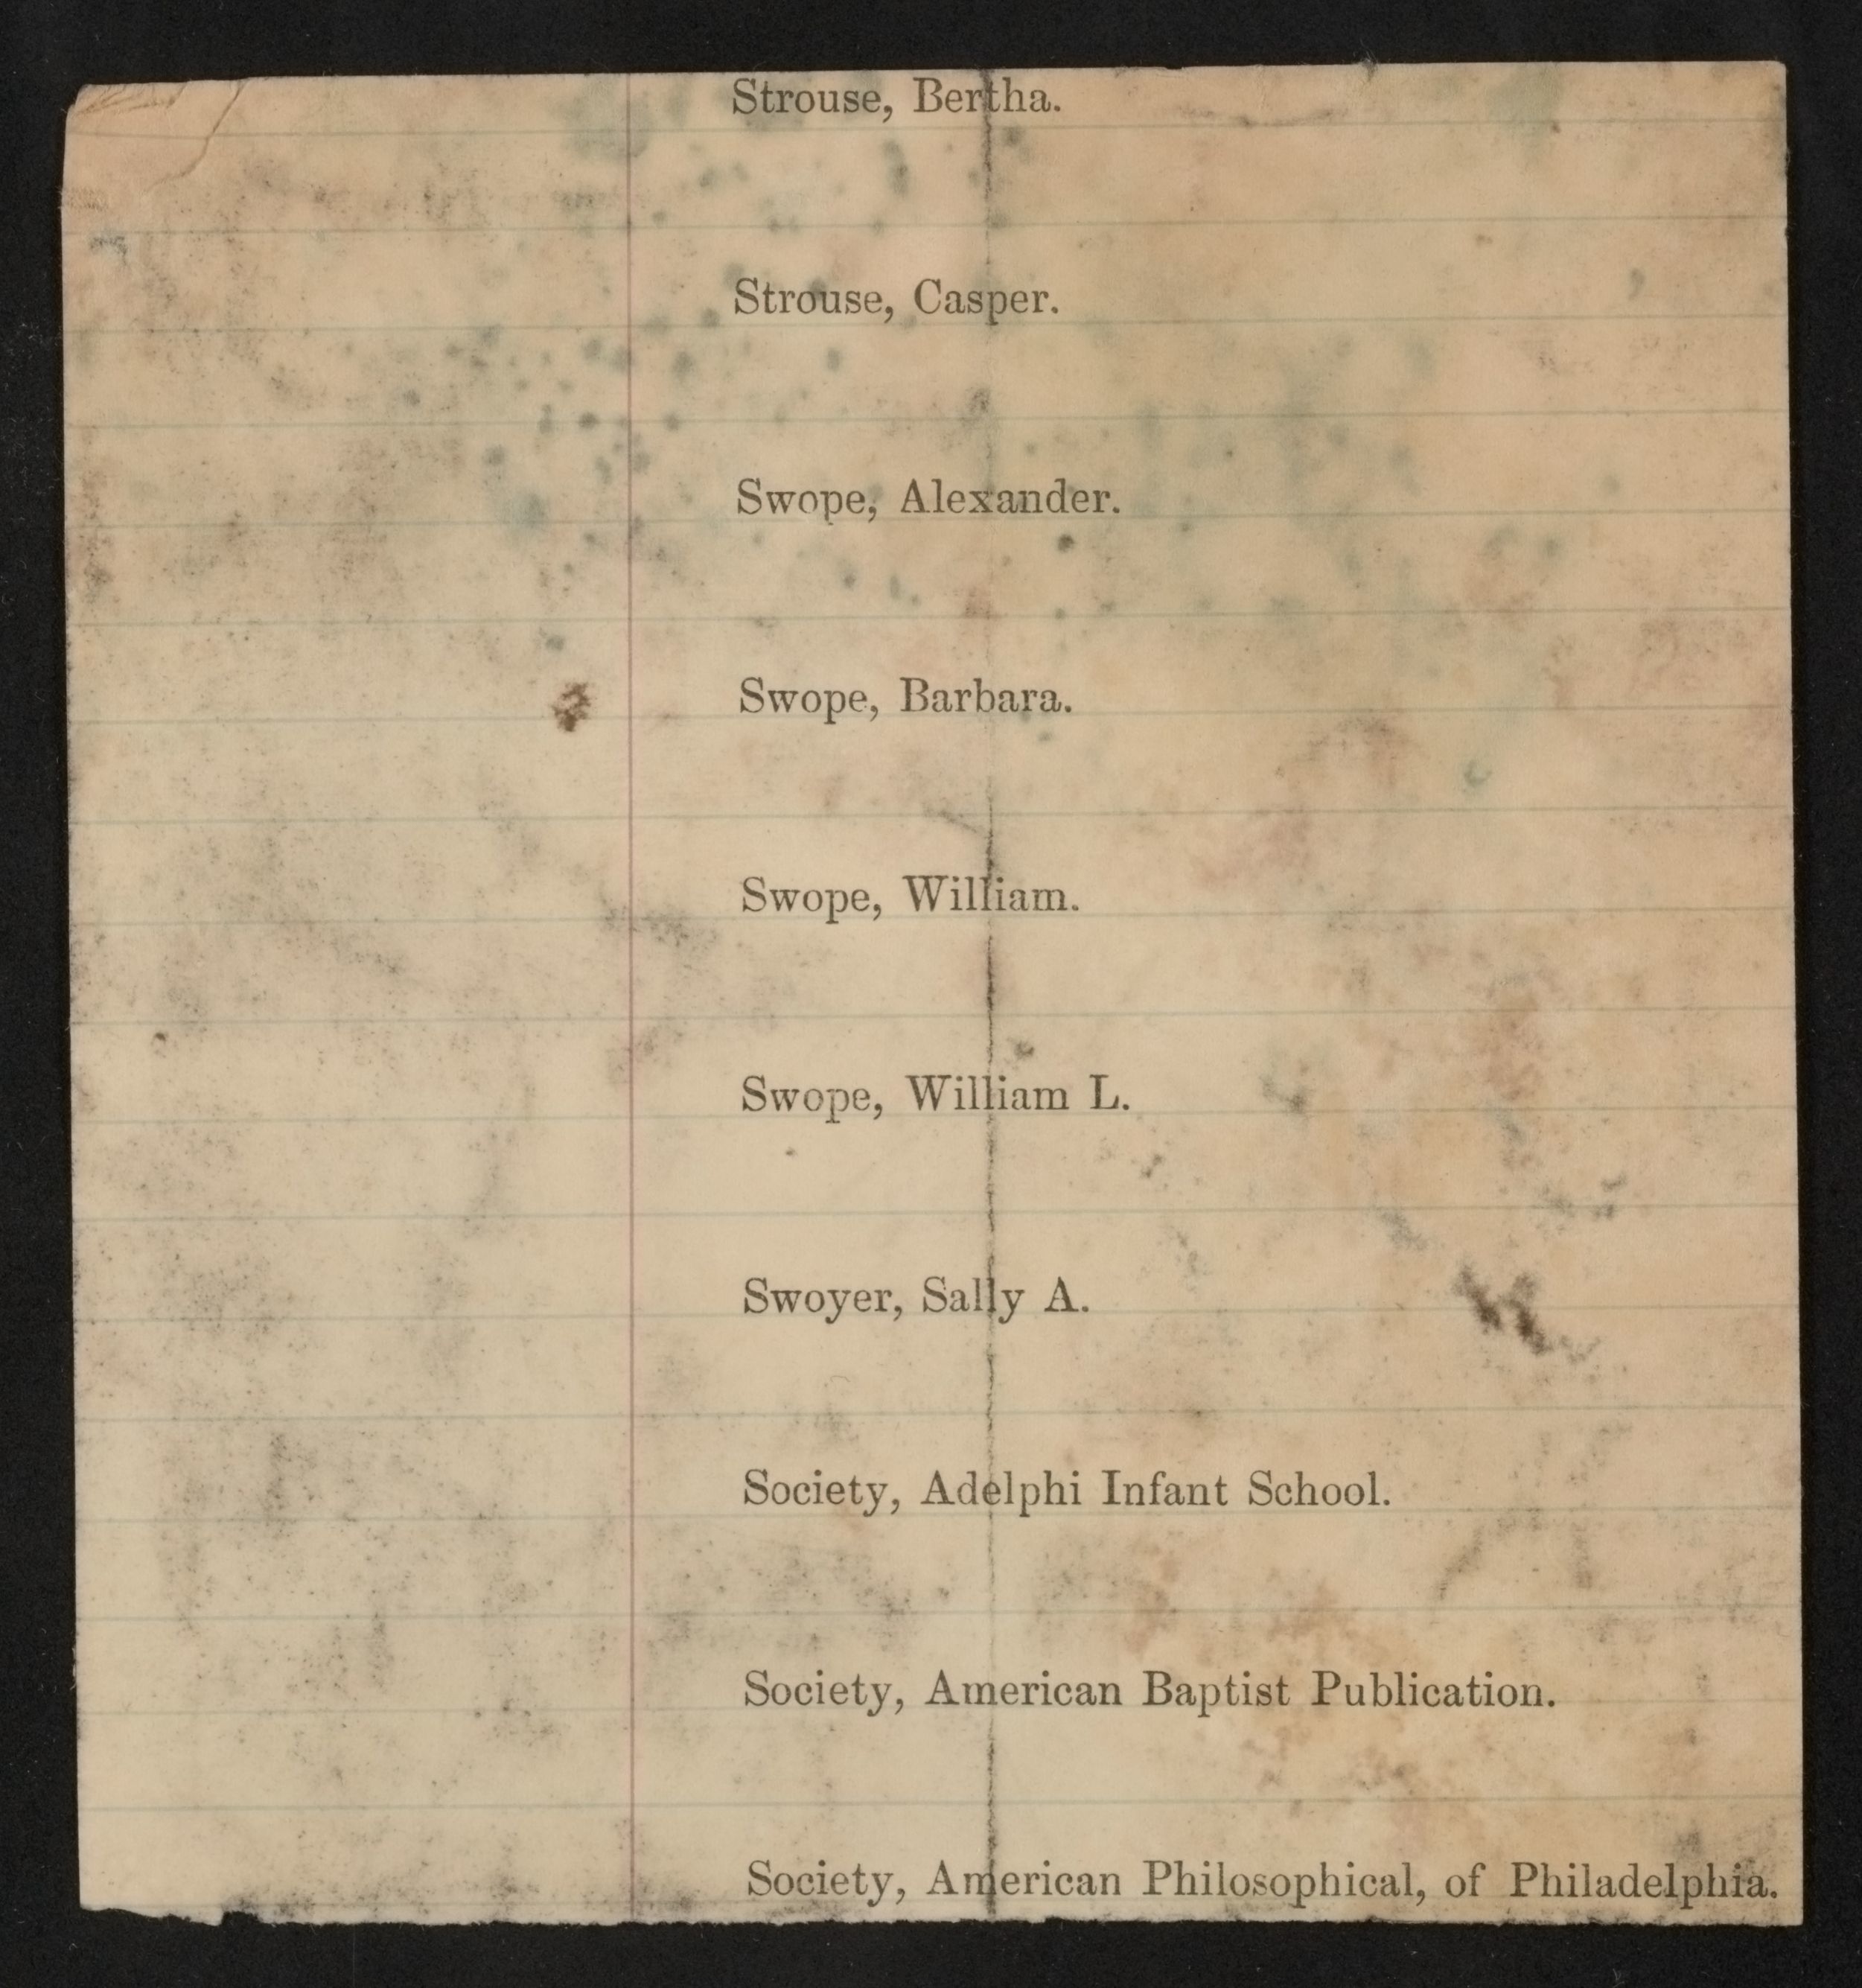 Strouse, Bertha.
Strouse, Casper.
Swope, Alexander.
Swope, Barbara.
Swope, William.
Swope, William L.
Swoyer, Sally A.
Society, Adelphi Infant School.
Society, American Baptist Publication.
Society, American Philosophical, of Philadelphia.